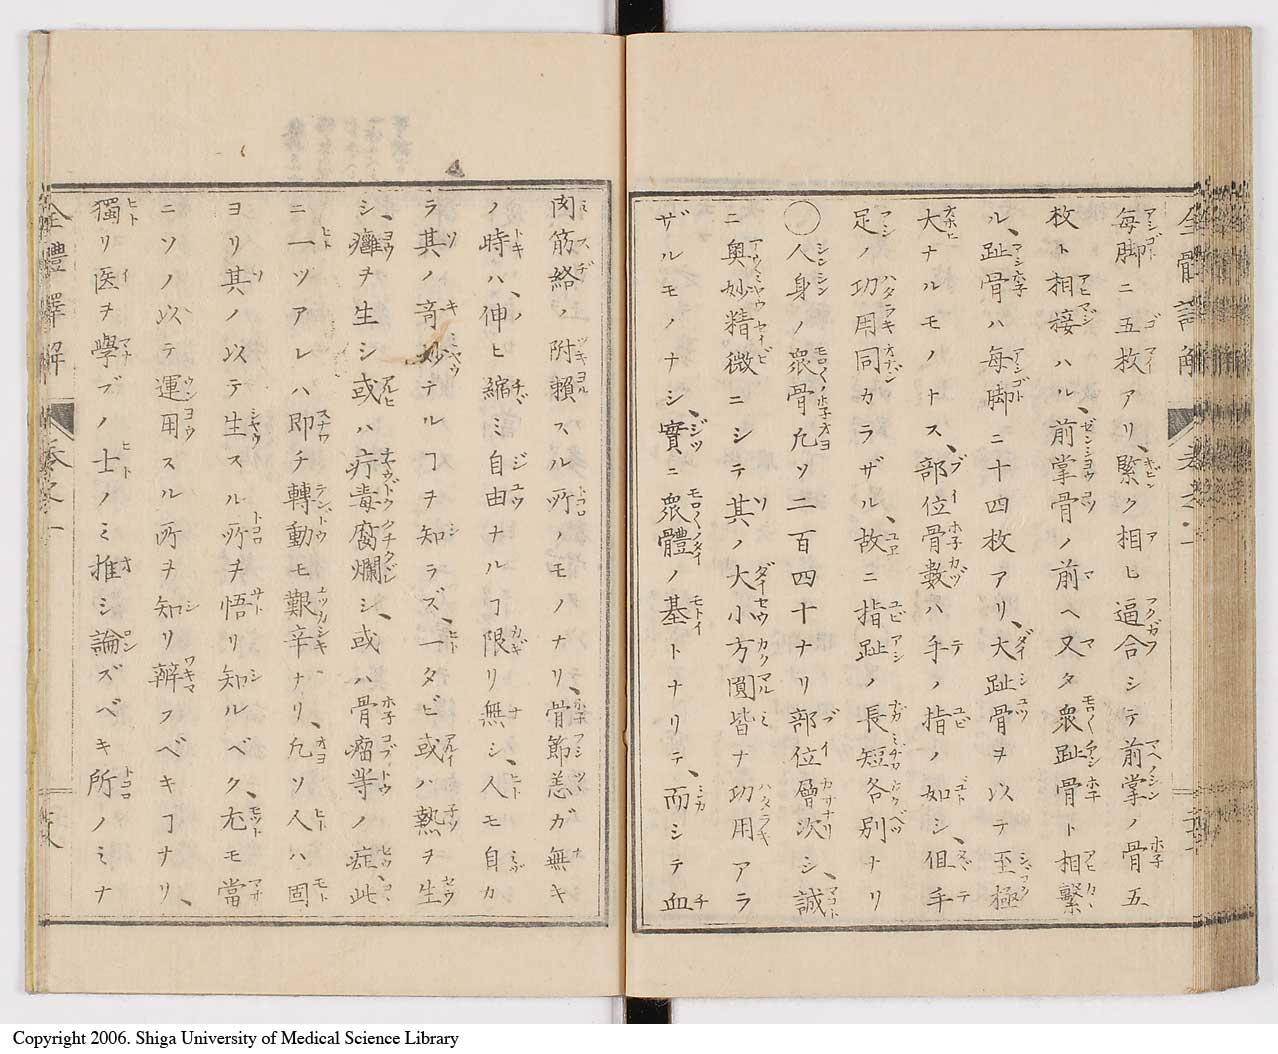 全體譯解 卷之一
每脚ニ五枚アリ、緊ク相ヒ逼合シテ前掌ノ骨五
枚ト相接ハル、前掌骨ノ前ヘ又タ衆趾骨ト相繫
ル、趾骨ハ每脚ニ十四枚アリ、大趾骨ヲ以テ至極
大ナルモノトス、部位骨数ハ手ノ指ノ如シ、但手
足ノ功用同カラザル、故ニ指趾ノ長短各別ナリ
〇人身ノ衆骨凢ソ二百四十ナリ部位層次シ、誠
ニ奥妙精微ニシテ其ノ大小方圓皆ナ功用アラ
ザルモノナシ、實ニ衆體ノ基トナリテ、而シテ血
肉筋絡ノ附賴スル所ノモノナリ、骨節恙ガ無キ
ノ時ハ、伸ヒ縮ミ自由ナルヿ限リ無シ、人モ自カ
ラ其ノ竒妙テルヿヲ知ラズ、一タビ或ハ熱ヲ生
シ、癰ヲ生シ或ハ疔毒腐爛シ、或ハ骨瘤等ノ症此
ニ一ツアレハ即チ轉動モ艱辛ナリ、凢ソ人ハ固
ヨリ其ノ以テ生スル所ヲ悟リ知ルベク、尤モ當
ニソノ以テ運用スル所ヲ知リ辨フベキヿナリ、
獨リ医ヲ學ブノ士ノミ推シ論ズベキ所ノミナ
全體譯解 卷之一
Copyright 2006. Shiga University of Medical Science Library